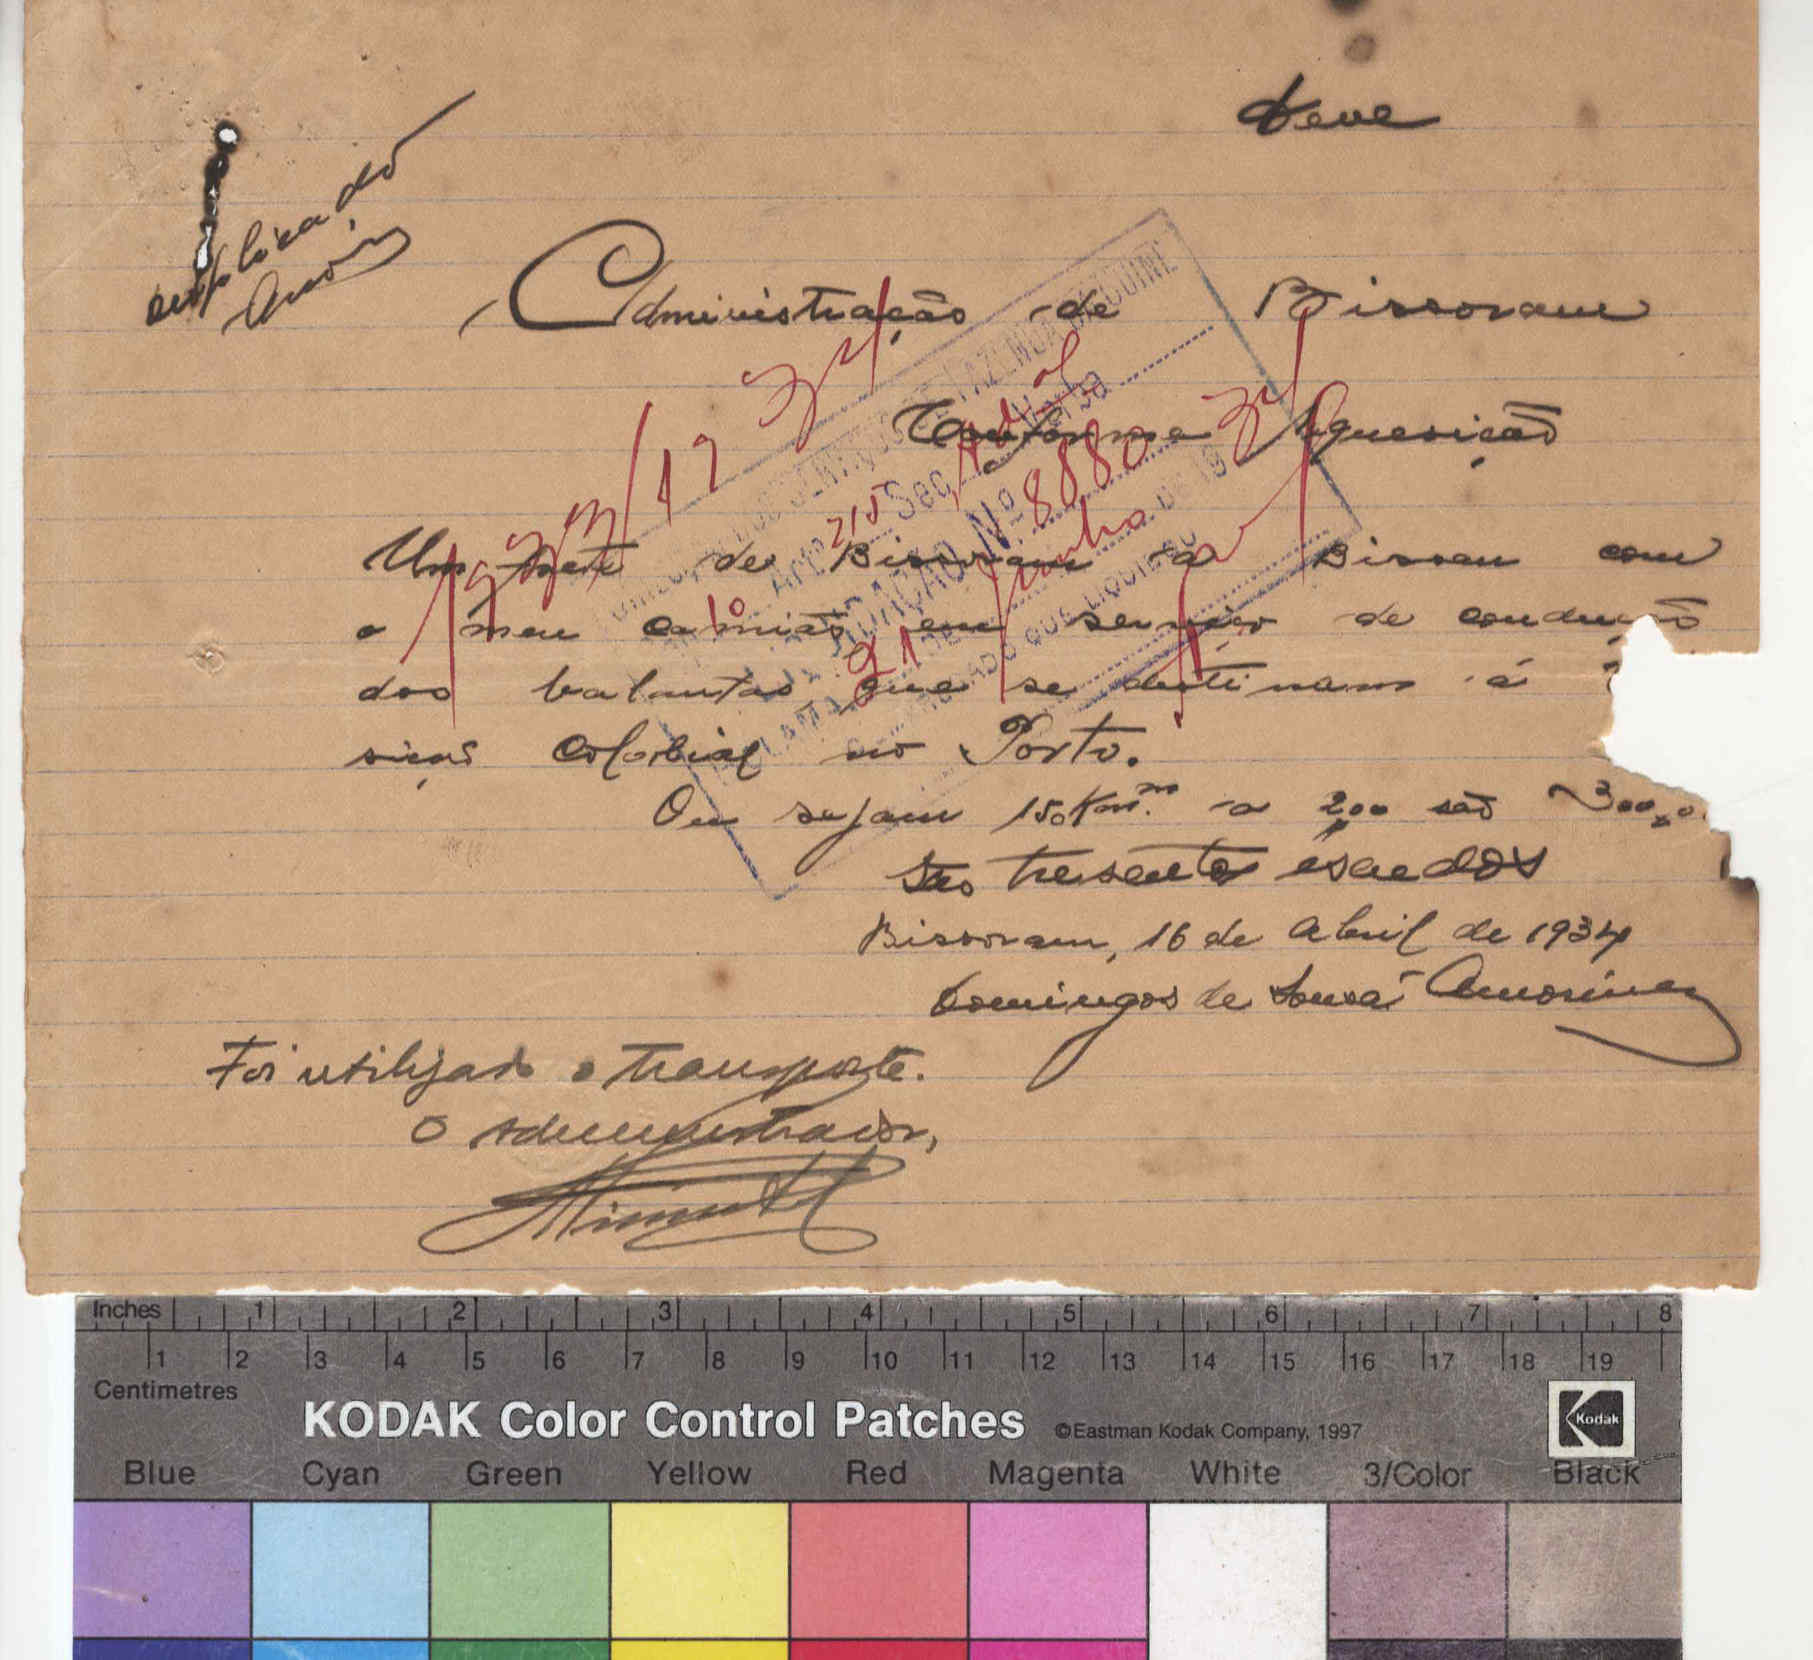 Deve
duplicado
Administração de Bissoram
Conforme Requesição
Um frete de Bissoram a Bissau com
o meu camião em serviço de condução
dos balantas que se destinam á
sição Colonial no Porto.
Ou sejam 150 Km.ᵐ a 2,00 são 300,0
São tresentos escudos
Bissoram, 16 de Abril de 1934
Domingos de Sousa
Foi utilizado o transporte.
O Administrador,
FAZENDA DA GUINÉ
Sec. Verba
Nº 8880
215
10
21 Junho DE 19 34
QUE LIQUIDEI
Inches 1 2 3 4 5 6 7 8
1 2 3 4 5 6 7 8 9 10 11 12 13 14 15 16 17 18 19
Centimetres
KODAK Color Control Patches ©Eastman Kodak Company, 1997 Kodak
Blue Cyan Green Yellow Red Magenta White 3/Color Black